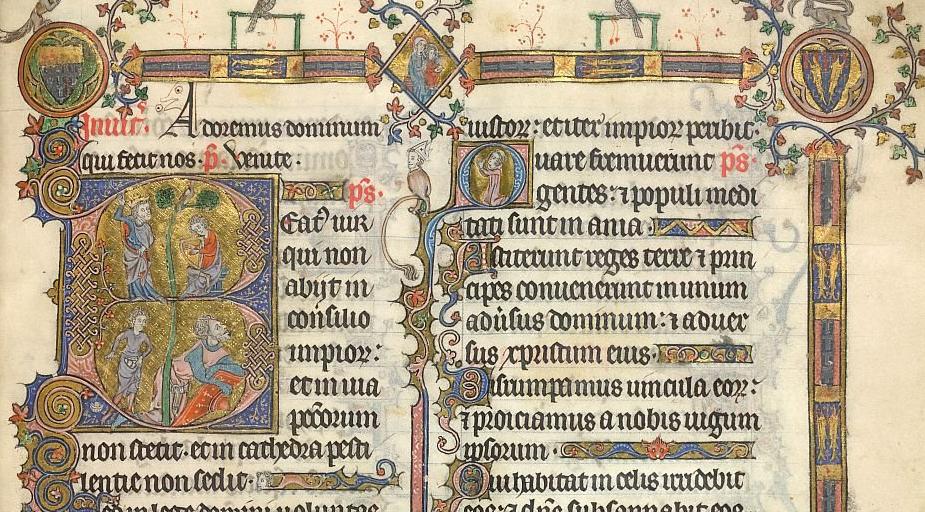 Inuit. Adoremus dominum
qui fecit nos. p̄. Venite.
ps.
Eat᷒ uir
qui non
abijt in
consilio
impioꝝ:
et in uia
pctōrum
non stetit. et in cathedra pesti
lentie non sedit.
iustoꝝ: et iter impioꝝ peribit.
Quare fremuerunt ps.
gentes: ⁊ populi medi
tati sunt inania.
Astiterunt reges terre ⁊ prin
cipes conuenerunt in unum
aduīsus dominum: ⁊ aduer
sus xpristum eius.
Disrumpamus uincula eoꝝ:
⁊ proiciamus a nobis iugum
ipsorum.
Qui habitat in celis irridebit
eos: ⁊ dn̄s subsannabit eos.